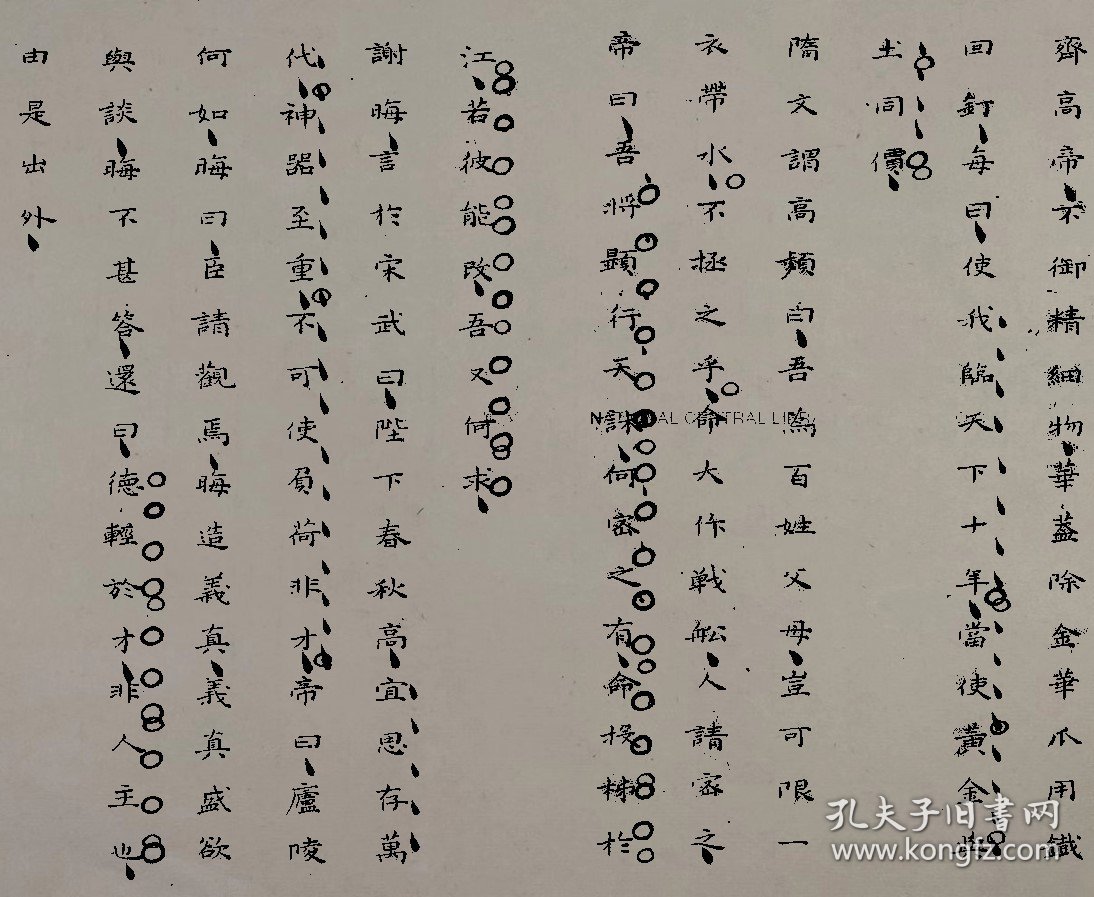 齊高帝不御精細物華葢除金華爪用鐵
回釘每曰使我臨天下十年當使黃金與
土同價
隋文謂高熲曰吾為百姓父母豈可限一
衣帶水不拯之乎命大作戰舩人請密之
帝曰吾將顯行天誅何密之有命投梯於
江若彼能改吾又何求
謝晦言於宋武曰陛下春秋高宜思存萬
代神器至重不可使負荷非才帝曰廬陵
何如晦曰臣請觀焉晦造義真義真盛欲
與談晦不甚答還曰德輕於才非人主也
由是出外
NATIONAL CENTRAL LIB
孔夫子旧書网
www.kongfz.com